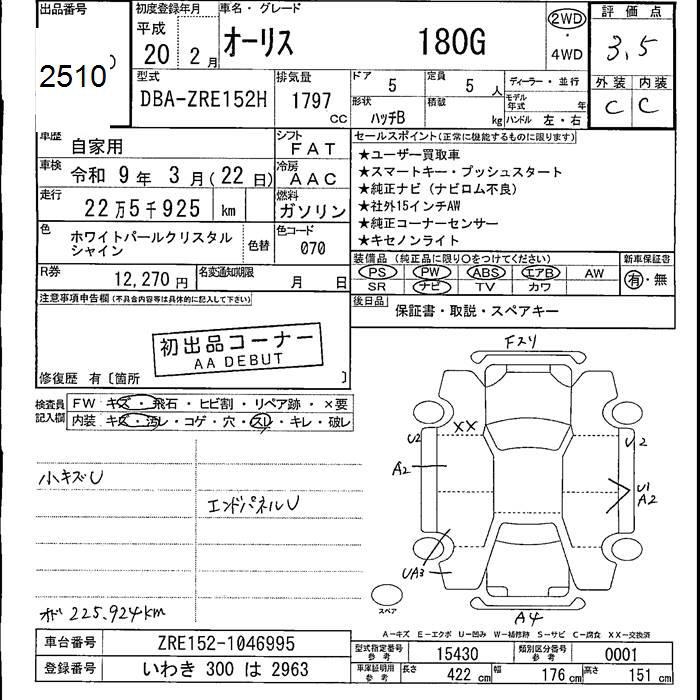 出品番号
2510
初度登録年月
平成
20 年 2 月
車名・グレード
オーリス 180G
2WD
・
4WD
評価点
3.5
型式
DBA-ZRE152H
排気量
1797 CC
ドア 5
定員 5 人
形状 ハッチB
積載 kg
ディーラー・並行
モデル年式 年
ハンドル 左・右
外装 内装
C C
車歴 自家用
シフト FAT
車検 令和 9 年 3 月 (22 日)
冷房 AAC
走行 22万5千925 km
燃料 ガソリン
色 ホワイトパールクリスタルシャイン
色替
色コード 070
R券 12,270 円
名変通知期限 月 日
セールスポイント(正常に機能するものに限ります)
★ユーザー買取車
★スマートキー・プッシュスタート
★純正ナビ(ナビロム不良)
★社外15インチAW
★純正コーナーセンサー
★キセノンライト
装備品(純正品に限り○をつけてください)
PS PW ABS エアB AW
SR ナビ TV カワ
新車保証書
有・無
後日品 保証書・取説・スペアキー
注意事項申告欄(不具合内容等は具体的に記入して下さい)
初出品コーナー
AA DEBUT
修復歴 有〔箇所 〕
検査員記入欄
FW キズ・飛石・ヒビ割・リペア跡・×要
内装 キズ・汚レ・コゲ・穴・スレ・キレ・破レ
小キズU
エンドパネルU
オド 225.924km
Fスリ
XX
U2
U2
A2
U1
A2
UA3
スペア
A4
A-キズ E-エクボ U-凹み W-補修跡 S-サビ C-腐食 XX-交換済
車台番号 ZRE152-1046995
登録番号 いわき 300 は 2963
型式指定番号 参考 15430
類別区分番号 参考 0001
車庫証明用 参考 長さ 422 cm 幅 176 cm 高さ 151 cm